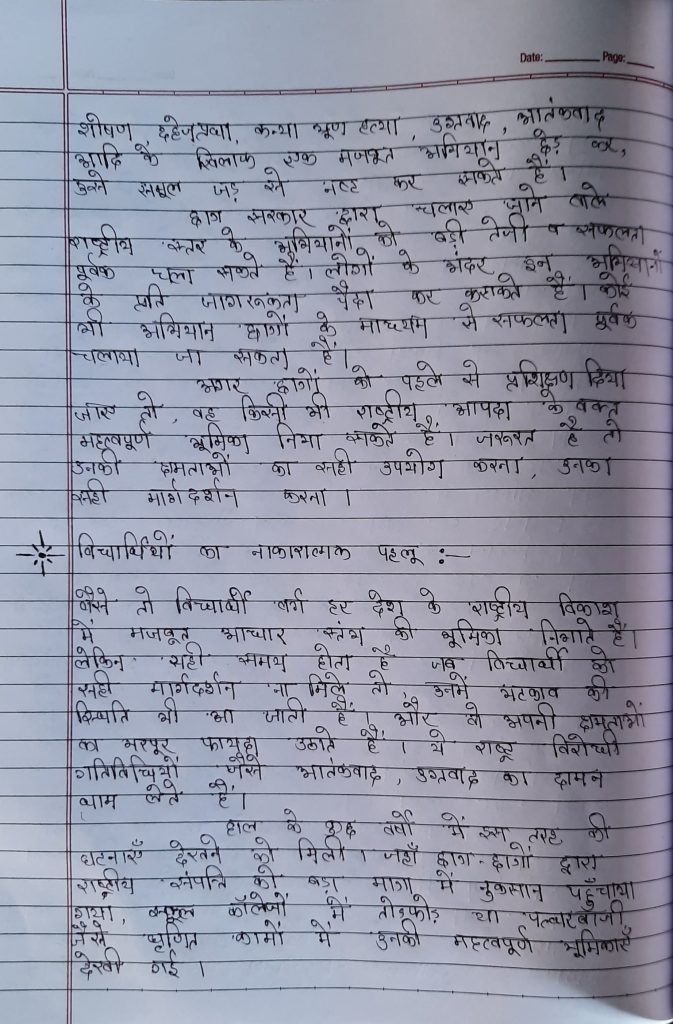 Date: ________ Page: ____
शोषण दहेजप्रथा, कन्या भ्रूण हत्या, उग्रवाद, आतंकवाद
आदि के खिलाफ एक मजबूत अभियान छेड़ कर,
उसे समूल जड़ से नष्ट कर सकते हैं।
छात्र सरकार द्वारा चलाए जाने वाले
राष्ट्रीय स्तर के अभियानों को बड़ी तेजी व सफलता
पूर्वक चला सकते हैं। लोगों के अंदर इन अभियानों
के प्रति जागरूकता पैदा कर सकते हैं। कोई
भी अभियान छात्रों के माध्यम से सफलता पूर्वक
चलाया जा सकता है।
अगर छात्रों को पहले से प्रशिक्षण दिया
जाए तो, वह किसी भी राष्ट्रीय आपदा के वक्त
महत्वपूर्ण भूमिका निभा सकते हैं। जरूरत है तो
उनकी क्षमताओं का सही उपयोग करना, उनका
सही मार्गदर्शन करना।
विद्यार्थियों का नाकारात्मक पहलू :—
वैसे तो विद्यार्थी वर्ग हर देश के राष्ट्रीय विकाश
में मजबूत आधार स्तंभ की भूमिका निभाते हैं।
लेकिन यही समय होता है जब विद्यार्थी को
सही मार्गदर्शन ना मिले तो, उनमें भटकाव की
स्थिति भी आ जाती है। और वो अपनी क्षमताओं
का भरपूर फायदा उठाते हैं। ये राष्ट्र विरोधी
गतिविधियों जैसे आतंकवाद, उग्रवाद का दामन
थाम लेते हैं।
हाल के कुछ वर्षों में इस तरह की
घटनाएँ देखने को मिली। जहाँ छात्र-छात्रों द्वारा
राष्ट्रीय संपत्ति को बड़ी मात्रा में नुकसान पहुँचाया
गया, स्कूल कॉलेजों में तोड़फोड़ या पत्थरबाजी
जैसे घृणित कामों में उनकी महत्वपूर्ण भूमिकाएँ
देखी गई।